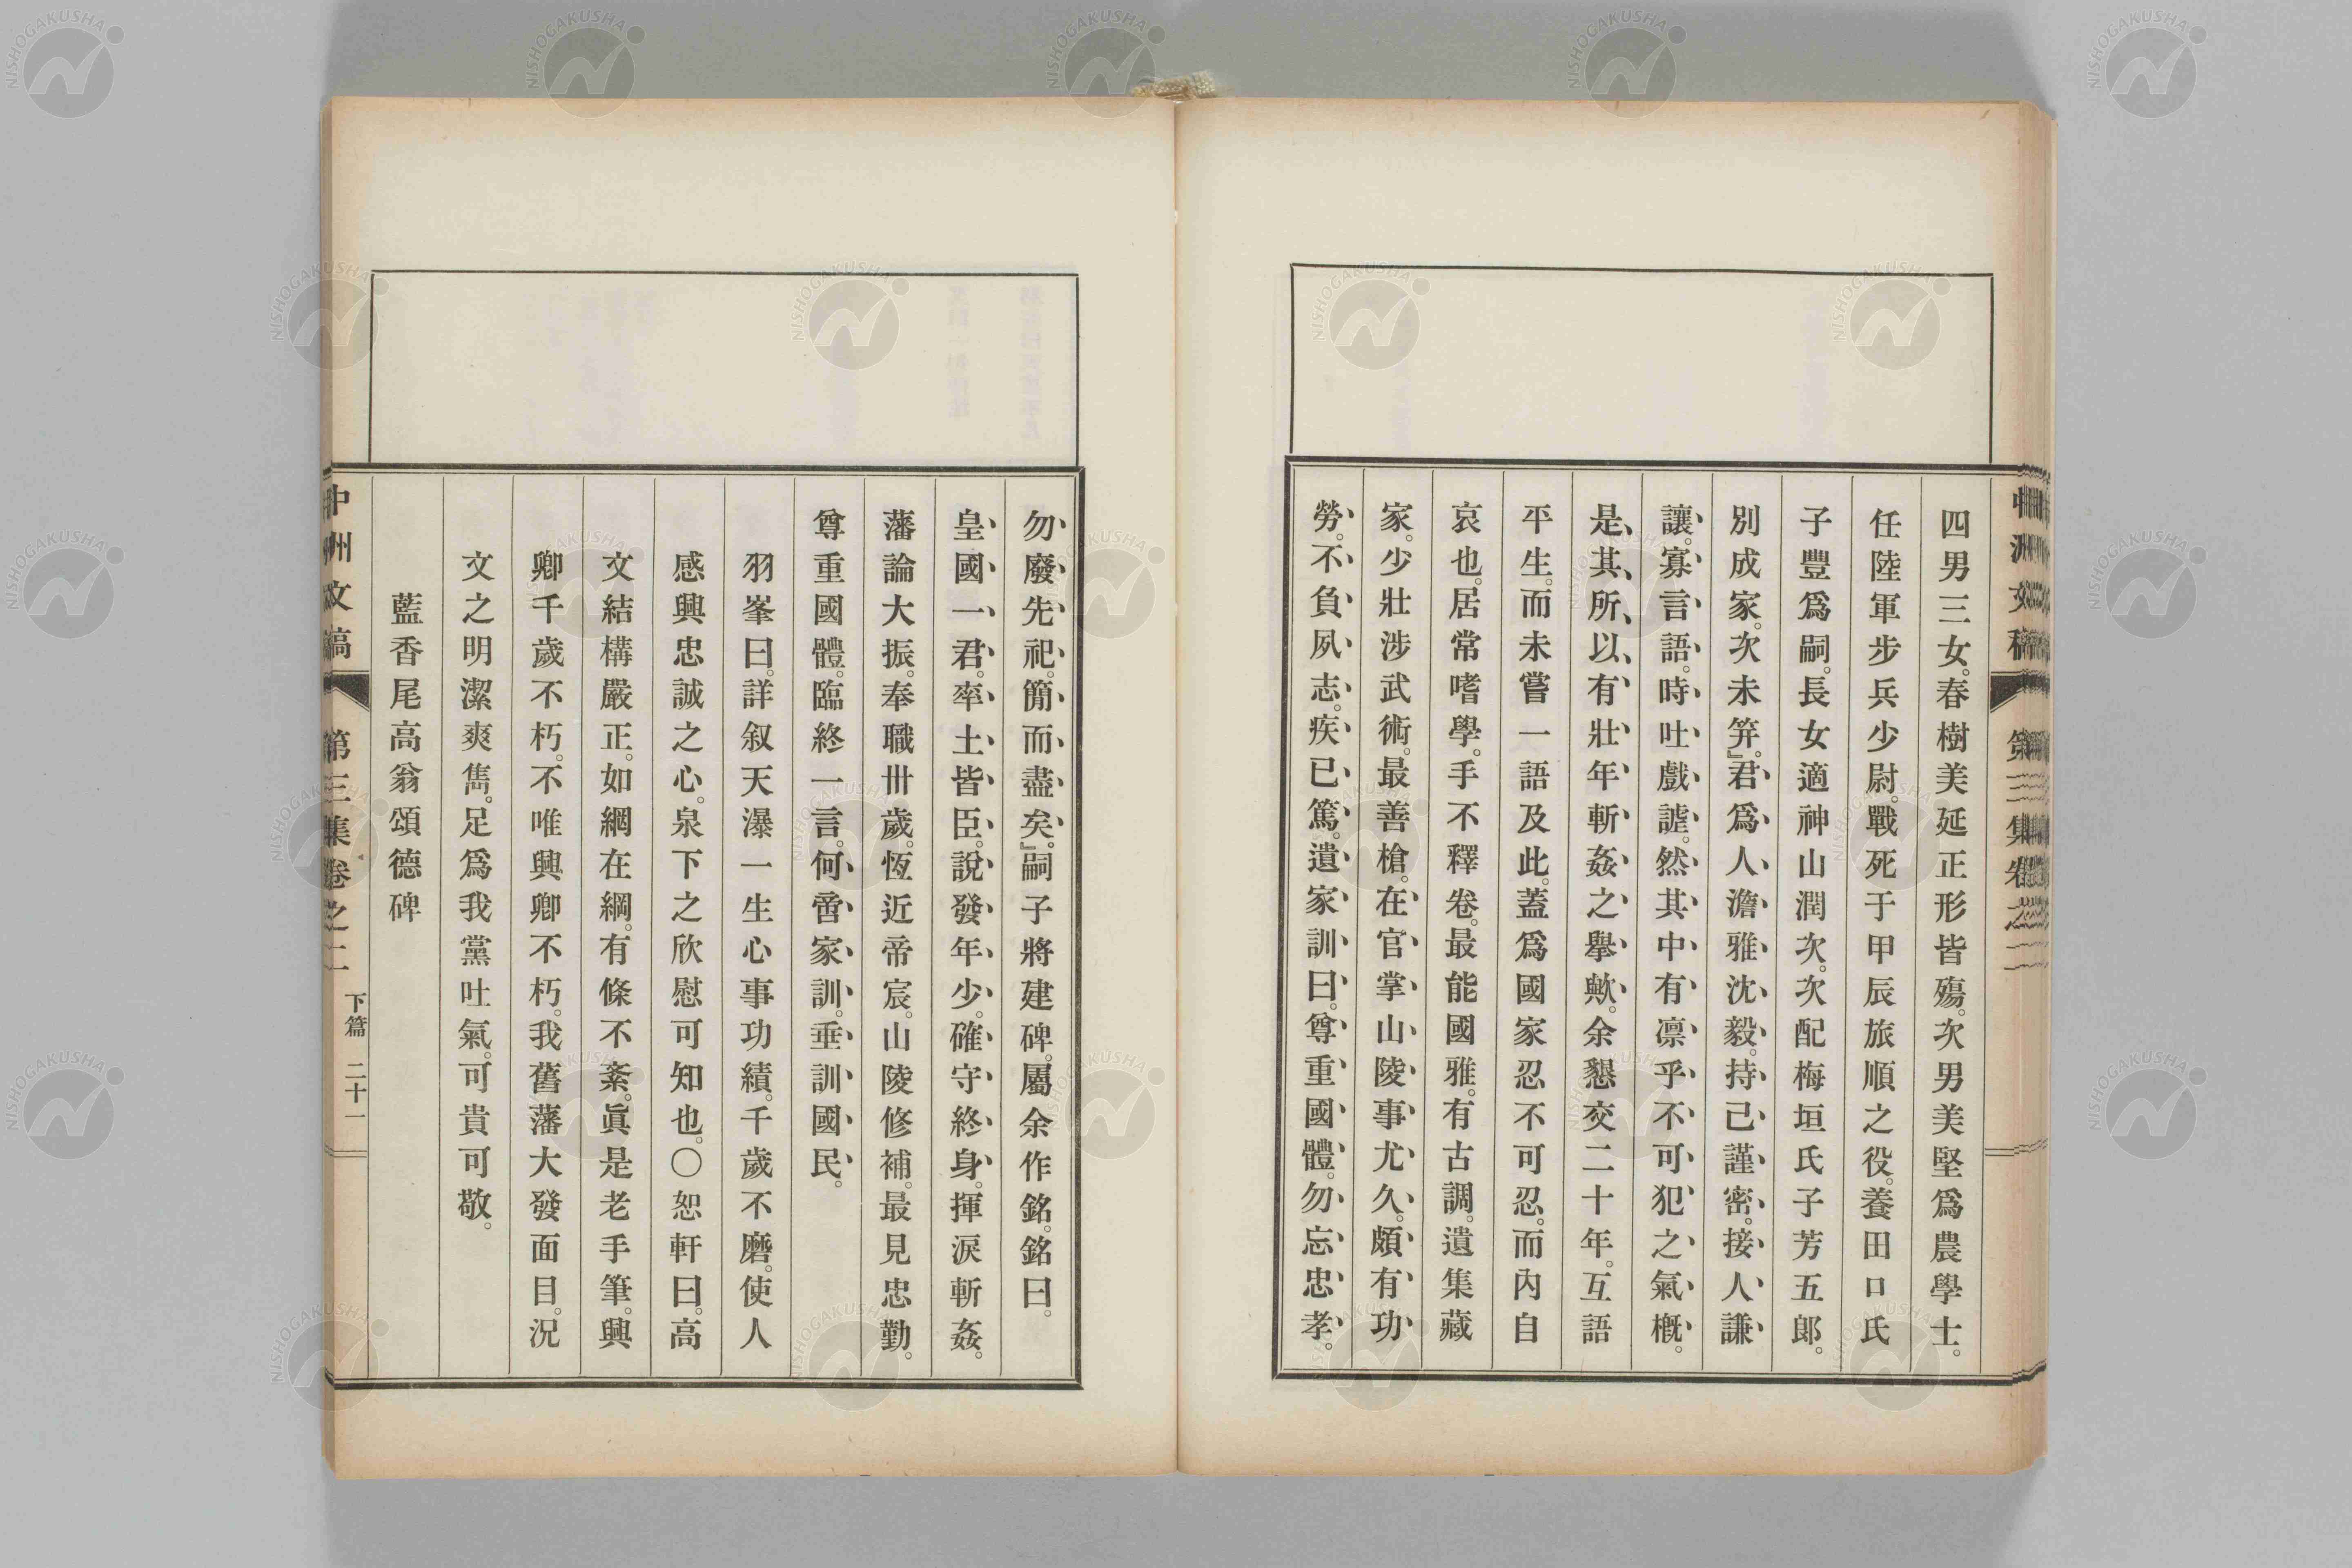 中洲文稿 第三集卷之二
四男三女。春樹美延正形皆殤。次男美堅爲農學士。
任陸軍步兵少尉。戰死于甲辰旅順之役。養田口氏
子豐爲嗣。長女適神山潤次。次配梅垣氏子芳五郞。
別成家。次未笄。』君爲人澹雅沈毅。持己謹密。接人謙
讓。寡言語。時吐戲謔。然其中有凛乎不可犯之氣槪。
是其所以有壯年斬姦之擧歟。余懇交二十年。互語
平生。而未嘗一語及此。蓋爲國家忍不可忍。而內自
哀也。居常嗜學。手不釋卷。最能國雅。有古調。遺集藏
家。少壯涉武術。最善槍。在官掌山陵事尤久。頗有功
勞。不負夙志。疾已篤。遺家訓曰。尊重國體。勿忘忠孝。
勿廢先祀。簡而盡矣。』嗣子將建碑。屬余作銘。銘曰。
皇國一君。率土皆臣。說發年少。確守終身。揮淚斬姦。
藩論大振。奉職卅歲。恆近帝宸。山陵修補。最見忠勤。
尊重國體。臨終一言。何啻家訓。垂訓國民。
羽峯曰。詳叙天瀑一生心事功績。千歲不磨。使人
感興忠誠之心。泉下之欣慰可知也。〇恕軒曰。高
文結構嚴正。如網在綱。有條不紊。眞是老手筆。興
卿千歲不朽。不唯興卿不朽。我舊藩大發面目。況
文之明潔爽雋。足爲我黨吐氣。可貴可敬。
藍香尾高翁頌德碑
中洲文稿 第三集卷之二 下篇 二十一
NISHOGAKUSHA